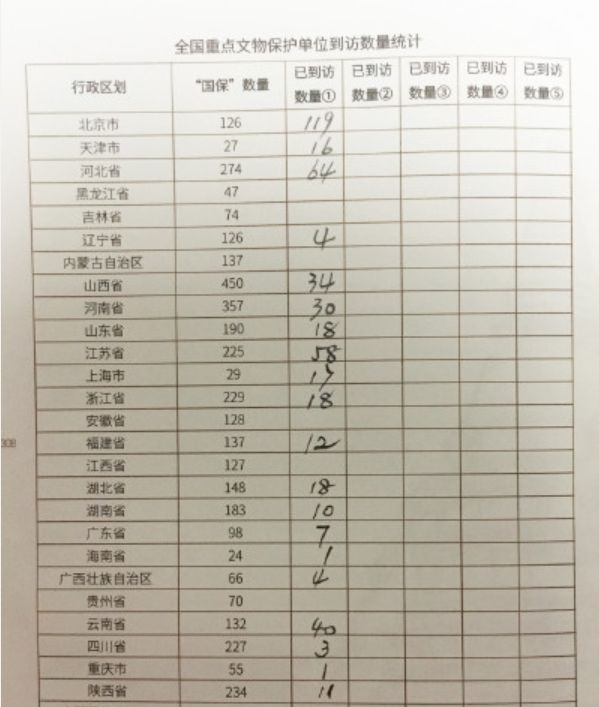 全国重点文物保护单位到访数量统计
行政区划 "国保"数量 已到访数量① 已到访数量② 已到访数量③ 已到访数量④ 已到访数量⑤
北京市 126 119
天津市 27 16
河北省 274 64
黑龙江省 47
吉林省 74
辽宁省 126 4
内蒙古自治区 137
山西省 450 34
河南省 357 30
山东省 190 18
江苏省 225 58
上海市 29 17
浙江省 229 18
安徽省 128
福建省 137 12
江西省 127
湖北省 148 18
湖南省 183 10
广东省 98 7
海南省 24 1
广西壮族自治区 66 4
贵州省 70
云南省 132 40
四川省 227 3
重庆市 55 1
陕西省 234 11
308